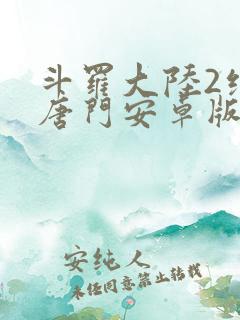 斗羅大陸2
唐門安卓版
安纯人
未经同意禁止转载